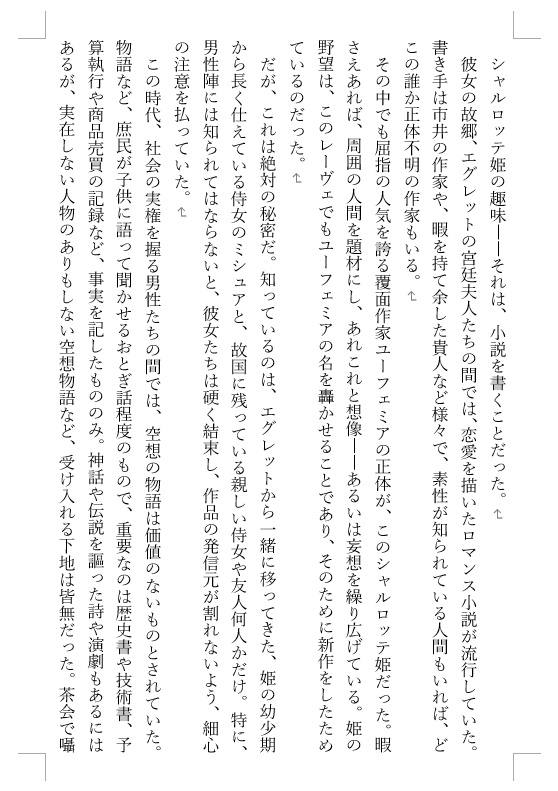 シャルロッテ姫の趣味――それは、小説を書くことだった。
彼女の故郷、エグレットの宮廷夫人たちの間では、恋愛を描いたロマンス小説が流行していた。
書き手は市井の作家や、暇を持て余した貴人など様々で、素性が知られている人間もいれば、ど
この誰か正体不明の作家もいる。
その中でも屈指の人気を誇る覆面作家ユーフェミアの正体が、このシャルロッテ姫だった。暇
さえあれば、周囲の人間を題材にし、あれこれと想像――あるいは妄想を繰り広げている。姫の
野望は、このレーヴェでもユーフェミアの名を轟かせることであり、そのために新作をしたため
ているのだった。
だが、これは絶対の秘密だ。知っているのは、エグレットから一緒に移ってきた、姫の幼少期
から長く仕えている侍女のミシュアと、故国に残っている親しい侍女や友人何人かだけ。特に、
男性陣には知られてはならないと、彼女たちは硬く結束し、作品の発信元が割れないよう、細心
の注意を払っていた。
この時代、社会の実権を握る男性たちの間では、空想の物語は価値のないものとされていた。
物語など、庶民が子供に語って聞かせるおとぎ話程度のもので、重要なのは歴史書や技術書、予
算執行や商品売買の記録など、事実を記したもののみ。神話や伝説を謳った詩や演劇もあるには
あるが、実在しない人物のありもしない空想物語など、受け入れる下地は皆無だった。茶会で囁